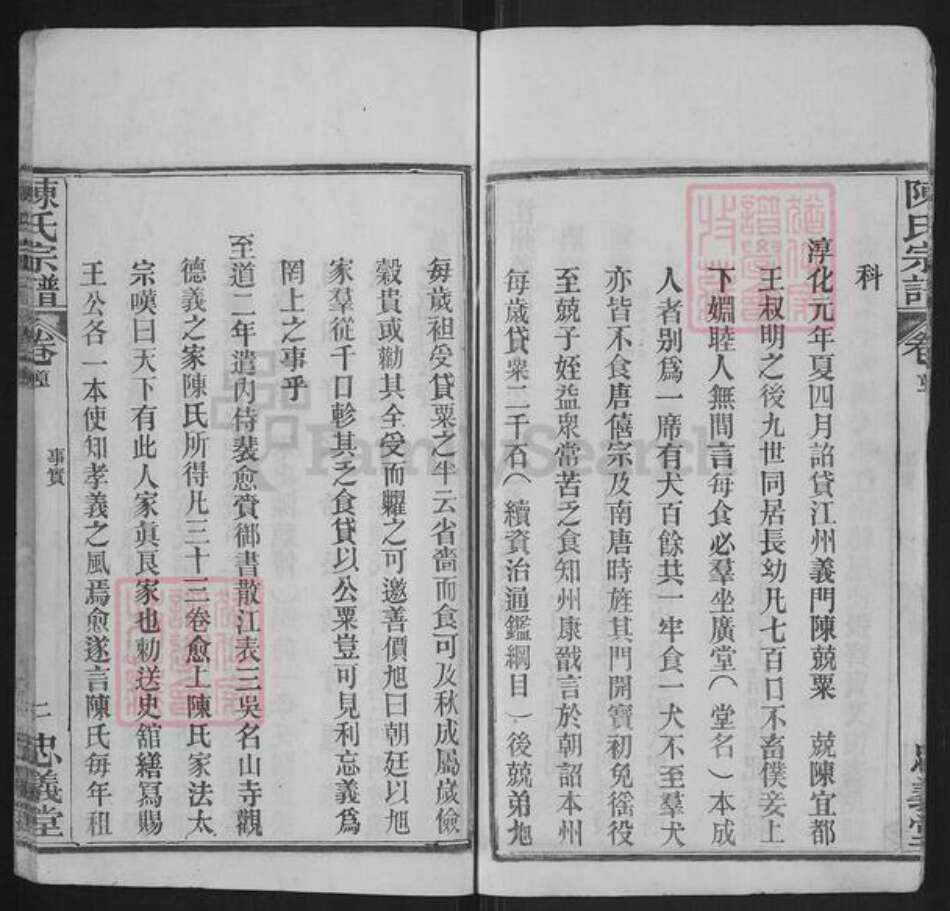 陳氏宗譜 卷首
科
淳化元年夏四月詔貸江州義門陳兢粟 兢陳宜都
王叔明之後九世同居長幼凡七百口不畜僕妾上
下婣睦人無間言每食必羣坐廣堂(堂名)本成
人者别爲一席有犬百餘共一牢食一犬不至羣犬
亦皆不食唐僖宗及南唐時旌其門開寶初免徭役
至兢子姪益衆常苦乏食知州康戩言於朝詔本州
每歲貸粟二千石(續資治通鑑綱目)後兢弟旭
每歲袒受貸粟之半云省嗇而食可及秋成屬歲儉
穀貴或勸其全受而糶之可邀善價旭曰朝廷以旭
家羣從千口軫其乏食貸以公粟豈可見利忘義爲
罔上之事乎
至道二年遣內侍裴愈賫御書散江表三吳名山寺觀
德義之家陳氏所得凡三十三卷愈上陳氏家法太
宗嘆曰天下有此人家眞良家也勅送史舘繕寫賜
王公各一本使知孝義之風焉愈遂言陳氏每年租
陳氏宗譜 卷首 事實 二 忠義堂
FamilySearch